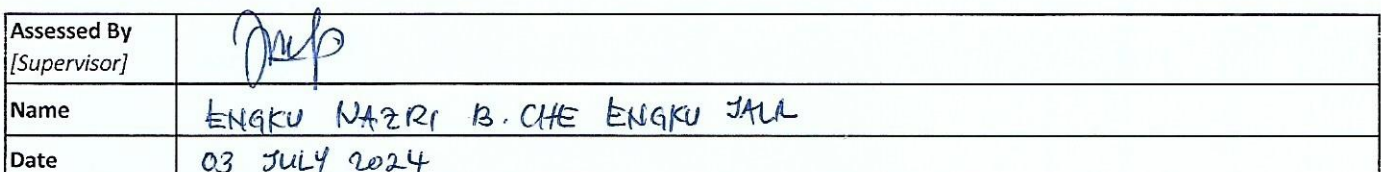 Assessed By
[Supervisor]
Name ENGKU NAZRI B. CHE ENGKU JALIL
Date 03 JULY 2024